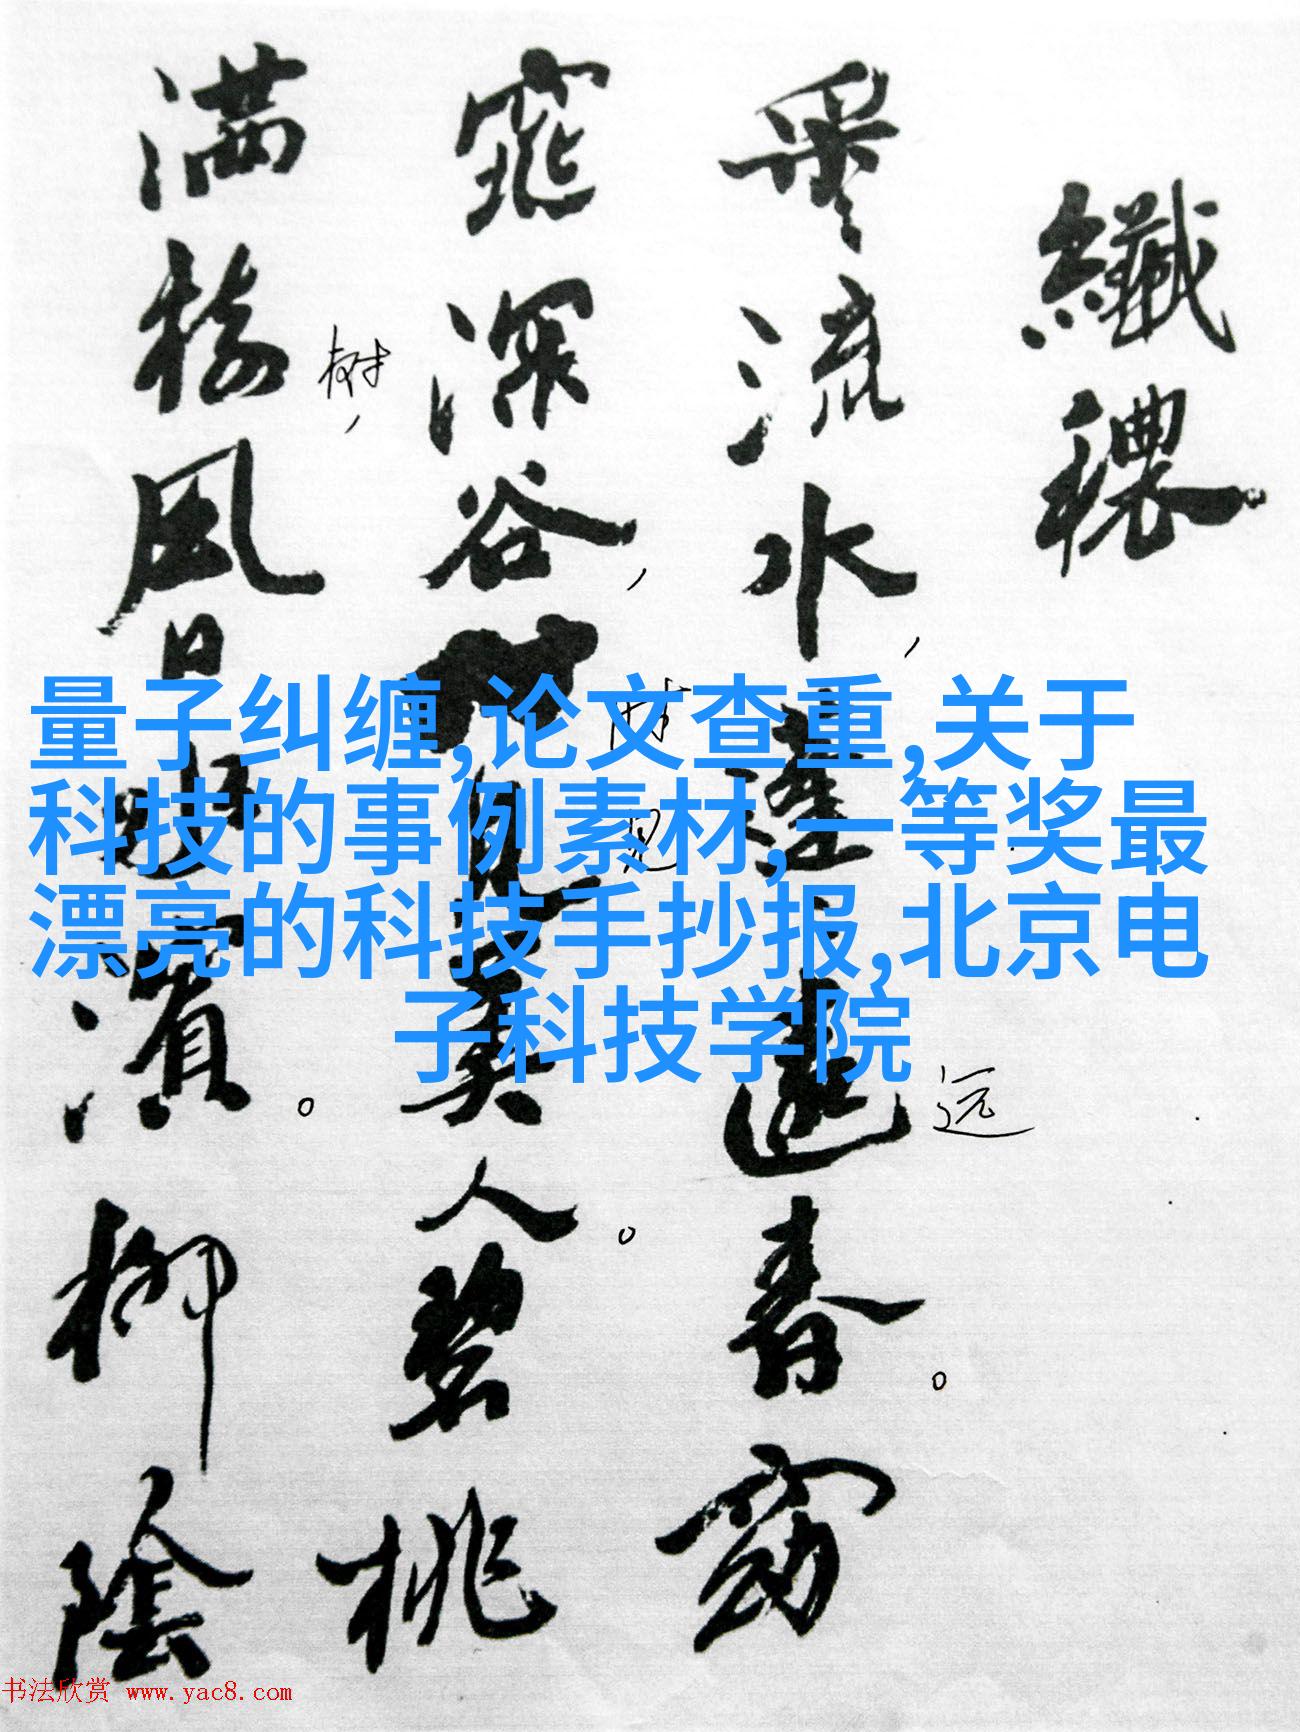 纖穠
采々流水，蓬々遠春。窈
远
窕深谷，見美人。碧桃
时
见
满樹風日水濱。柳陰
树，
量子纠缠,论文查重,关于
科技的事例素材,一等奖最
漂亮的科技手抄报,北京电
子科技学院
书法欣赏 www.yac8.com